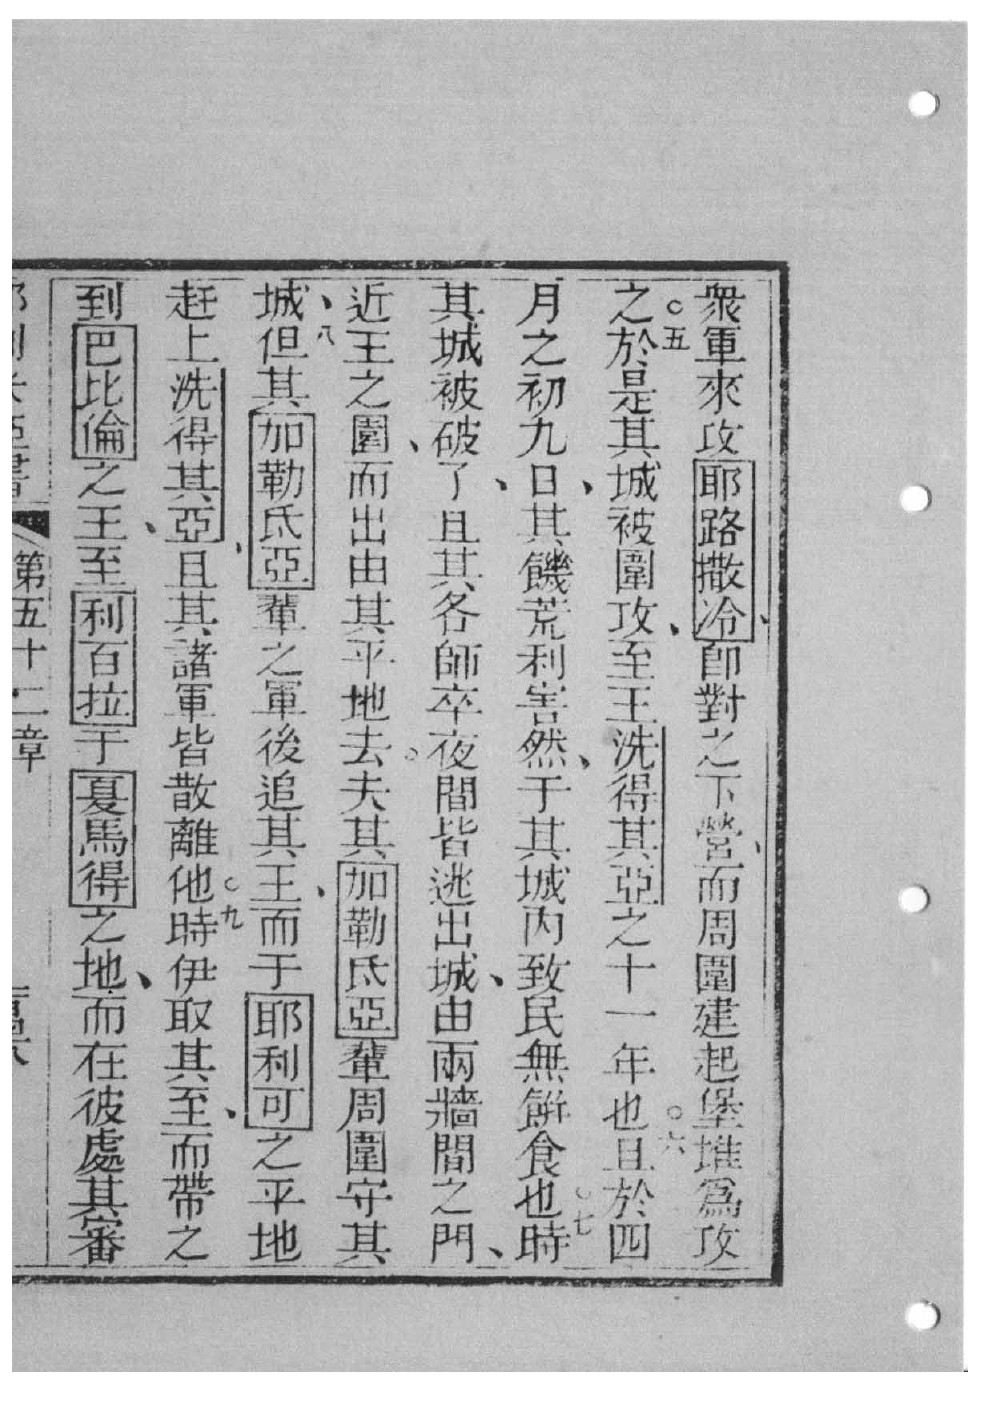 衆軍來攻耶路撒冷、卽對之下營、而周圍建起堡堆爲攻
之○五於是其城被圍攻、至王洗得其亞之十一年也○六且於四
月之初九日、其饑荒利害然、于其城內致民無餅食也○七時
其城被破了、且其各師卒夜間皆逃出城、由兩牆間之門、
近王之園、而出由其平地去○夫其加勒氐亞輩周圍守其
城、八但其加勒氐亞輩之軍後追其王、而于耶利可之平地
赶上洗得其亞、且其諸軍皆散離他○九時伊取其至、而帶之
到巴比倫之王、至利百拉于夏馬得之地、而在彼處其審
耶利米亞書 第五十二章